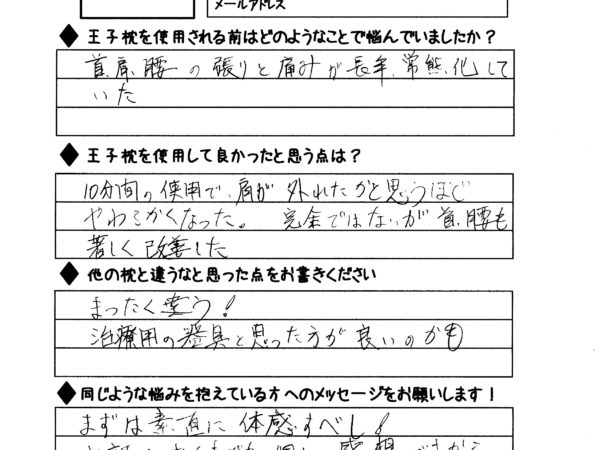 メールアドレス
◆王子枕を使用される前はどのようなことで悩んでいましたか？
首、肩、腰の張りと痛みが長年、常態化して
いた
◆王子枕を使用して良かったと思う点は？
10分間の使用で、肩が外れたかと思うほど
やわらかくなった。完全ではないが首、腰も
著しく改善した
◆他の枕と違うなと思った点をお書きください
まったく違う！
治療用の器具と思った方が良いのかも
◆同じような悩みを抱えている方へのメッセージをお願いします！
まずは素直に体感すべし！